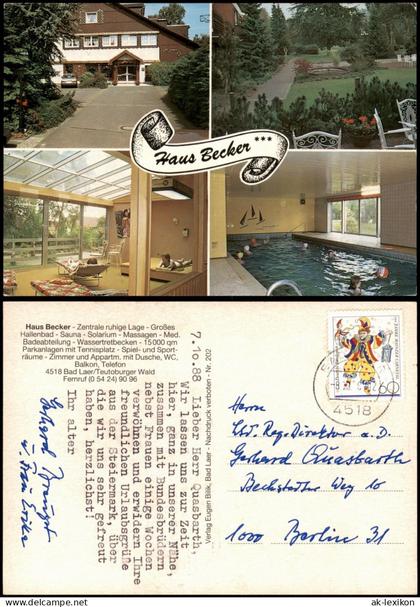 Haus Becker ***
Haus Becker - Zentrale ruhige Lage - Großes
Hallenbad - Sauna - Solarium - Massagen - Med.
Badeabteilung - Wassertretbecken - 15000 qm
Parkanlagen mit Tennisplatz - Spiel- und Sport-
räume - Zimmer und Appartm. mit Dusche, WC,
Balkon, Telefon
4518 Bad Laer/Teutoburger Wald
Fernruf (0 54 24) 90 96
7.10.88 Lieber Herr Quasbarth,
Wir lassen uns zur Zeit
hier, ganz in unserer Nähe,
zusammen mit Bundesbrüdern
nebst Frauen einige Wochen
verwöhnen und erwidern Ihre
freundlichen Urlaubsgrüße
aus der Steiermark, über
die wir uns sehr gefreut
haben, herzlichst!
Ihr alter
Gerhard
u. Frau
Verlag Eugen Bilik, Bad Laer - Nachdruck verboten - Nr. 202
60
4518
Herrn
Ltd. Reg. Direktor a. D.
Gerhard Quasbarth
Bechstedter Weg 10
1000 Berlin 31
www.ak-lexikon.com
ak-lexikon.com